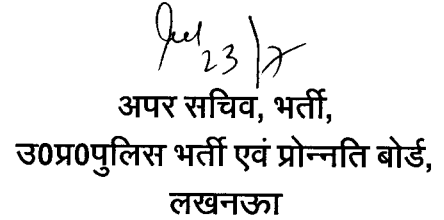 23/7
अपर सचिव, भर्ती,
उ0प्र0पुलिस भर्ती एवं प्रोन्नति बोर्ड,
लखनऊ।